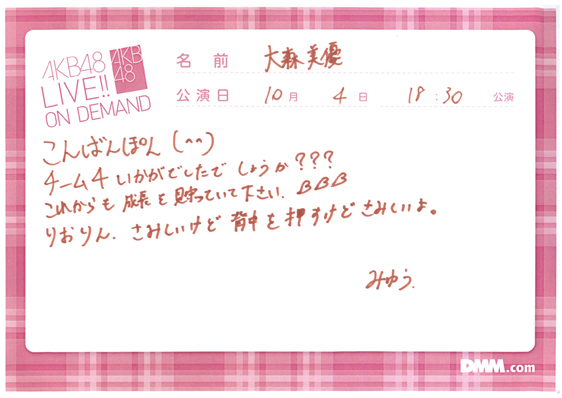 AKB48
LIVE!!
ON DEMAND
AKB
48
名前 大森美優
公演日 10月 4日 18:30 公演
こんばんぽん(^^)
チーム4いかがでしたでしょうか???
これからも成長を見守っていて下さい。BBB
りおりん、さみしいけど背中を押すけどさみしいよ。
みゆう.
DMM.com